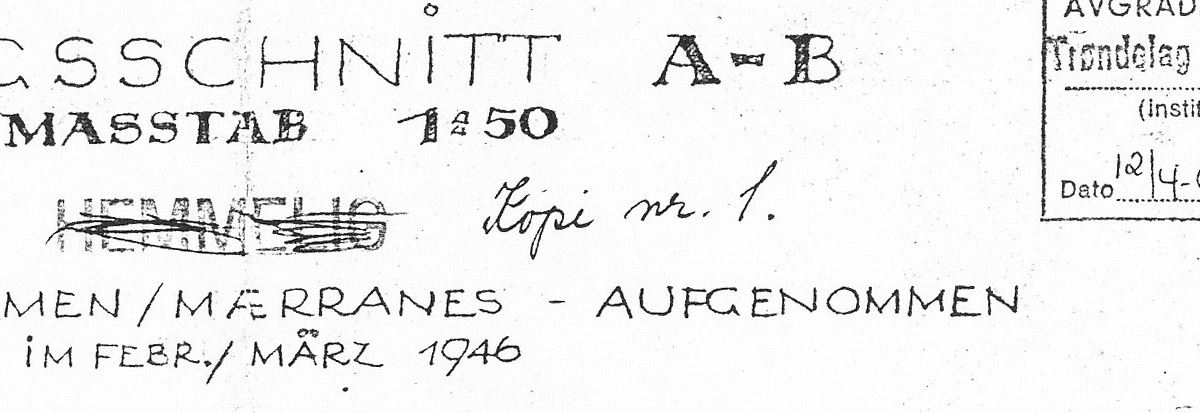 GSSCHNITT A-B
MASSTAB 1:50
HEMMELIG Kopi nr. 1.
MEN/MÆRRANES - AUFGENOMMEN
IM FEBR./MÄRZ 1946
AVGRAD
Trøndelag
(instit
Dato 12/4-